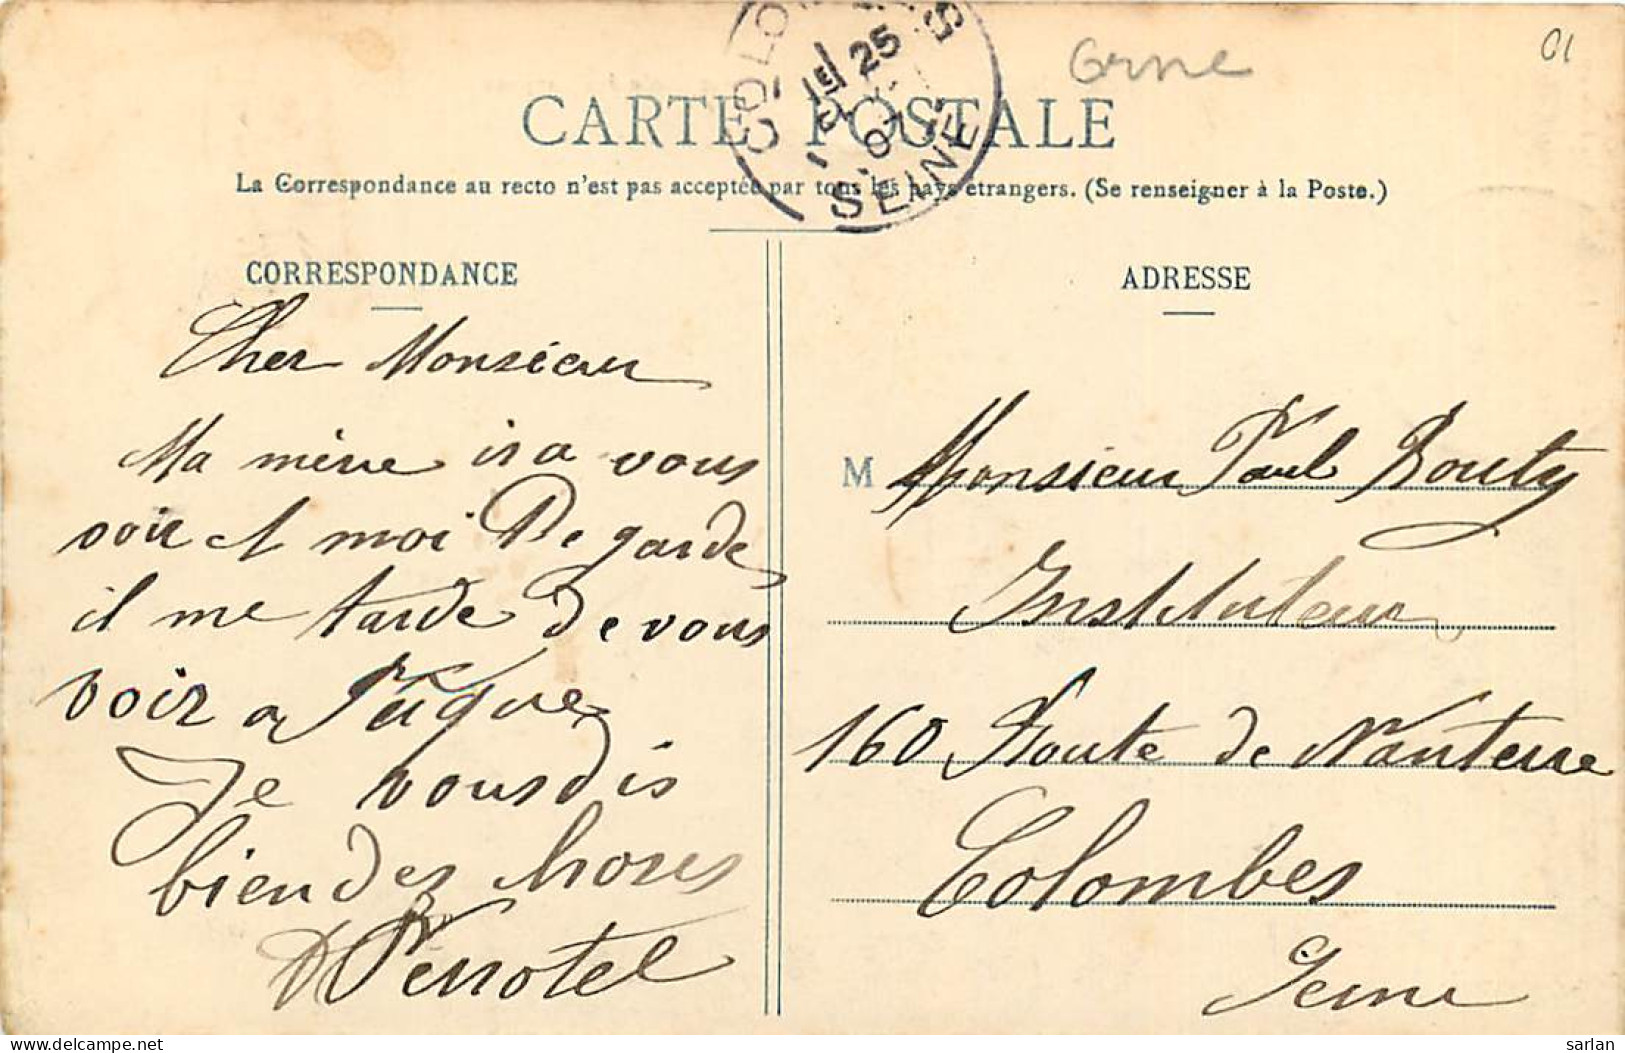 01
Orne
COLOMBES
25
07
SEINE
CARTE POSTALE
La Correspondance au recto n'est pas acceptée par tous les pays étrangers. (Se renseigner à la Poste.)
CORRESPONDANCE
Cher Monsieur
Ma mère ira vous
voir et moi Je garde
il me tarde de vous
voir a Pâques
Je vous dis
bien des choses
Perrotel
ADRESSE
M Monsieur Paul Bouty
Instituteur
160 Route de Nanterre
Colombes
Seine
sarlan